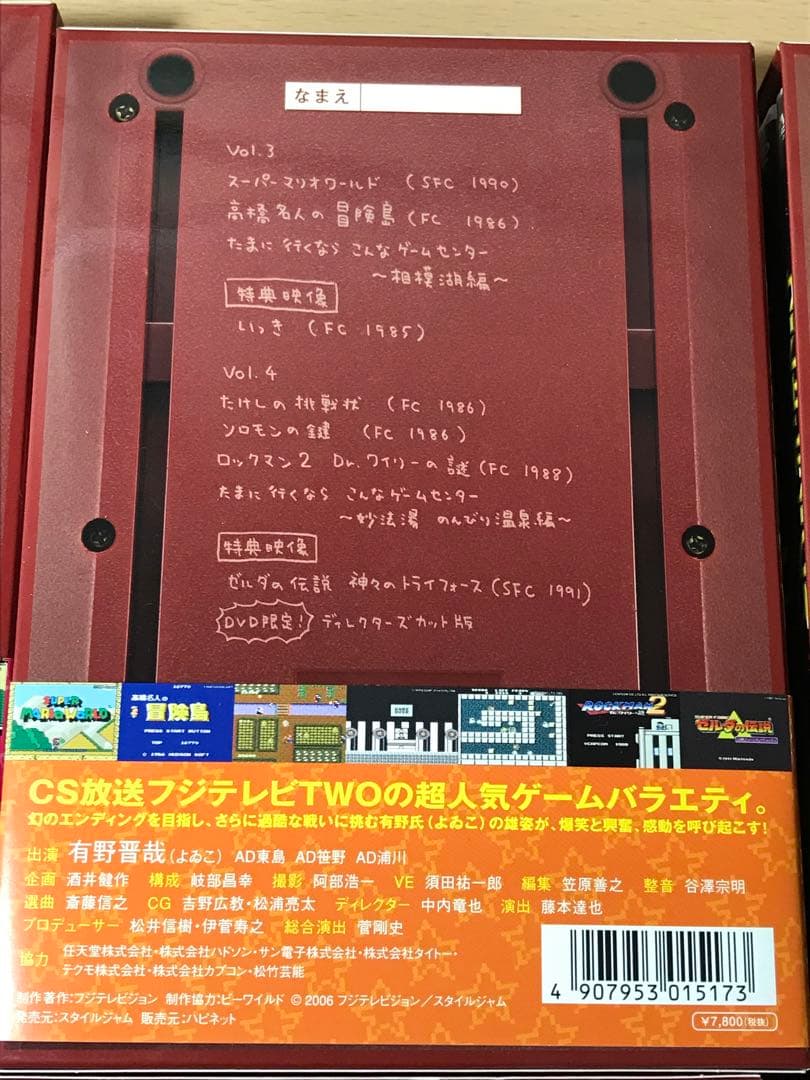 なまえ
Vol.3
スーパーマリオワールド (SFC 1990)
高橋名人の冒険島 (FC 1986)
たまに行くなら こんなゲームセンター
～相模湖編～
特典映像
いっき (FC 1985)
Vol.4
たけしの挑戦状 (FC 1986)
ソロモンの鍵 (FC 1986)
ロックマン2 Dr.ワイリーの謎 (FC 1988)
たまに行くなら こんなゲームセンター
～妙法湯 のんびり温泉編～
特典映像
ゼルダの伝説 神々のトライフォース (SFC 1991)
DVD限定! ディレクターズカット版
SUPER MARIO WORLD
高橋名人の
冒険島
PRESS START BUTTON
TOP
ROCKMAN 2
PRESS START
ゼルダの伝説
CS放送フジテレビTWOの超人気ゲームバラエティ。
幻のエンディングを目指し、さらに過酷な戦いに挑む有野氏(よゐこ)の雄姿が、爆笑と興奮、感動を呼び起こす!
出演 有野晋哉(よゐこ) AD東島 AD笹野 AD浦川
企画 酒井健作 構成 岐部昌幸 撮影 阿部浩一 VE 須田祐一郎 編集 笠原善之 整音 谷澤宗明
選曲 斎藤信之 CG 吉野広教・松浦亮太 ディレクター 中内竜也 演出 藤本達也
プロデューサー 松井信樹・伊菅寿之 総合演出 菅剛史
協力 任天堂株式会社・株式会社ハドソン・サン電子株式会社・株式会社タイトー・
テクモ株式会社・株式会社カプコン・松竹芸能
制作著作:フジテレビジョン 制作協力:ビーワイルド © 2006 フジテレビジョン／スタイルジャム
発売元:スタイルジャム 販売元:ハピネット
4 907953 015173
¥7,800(税抜)